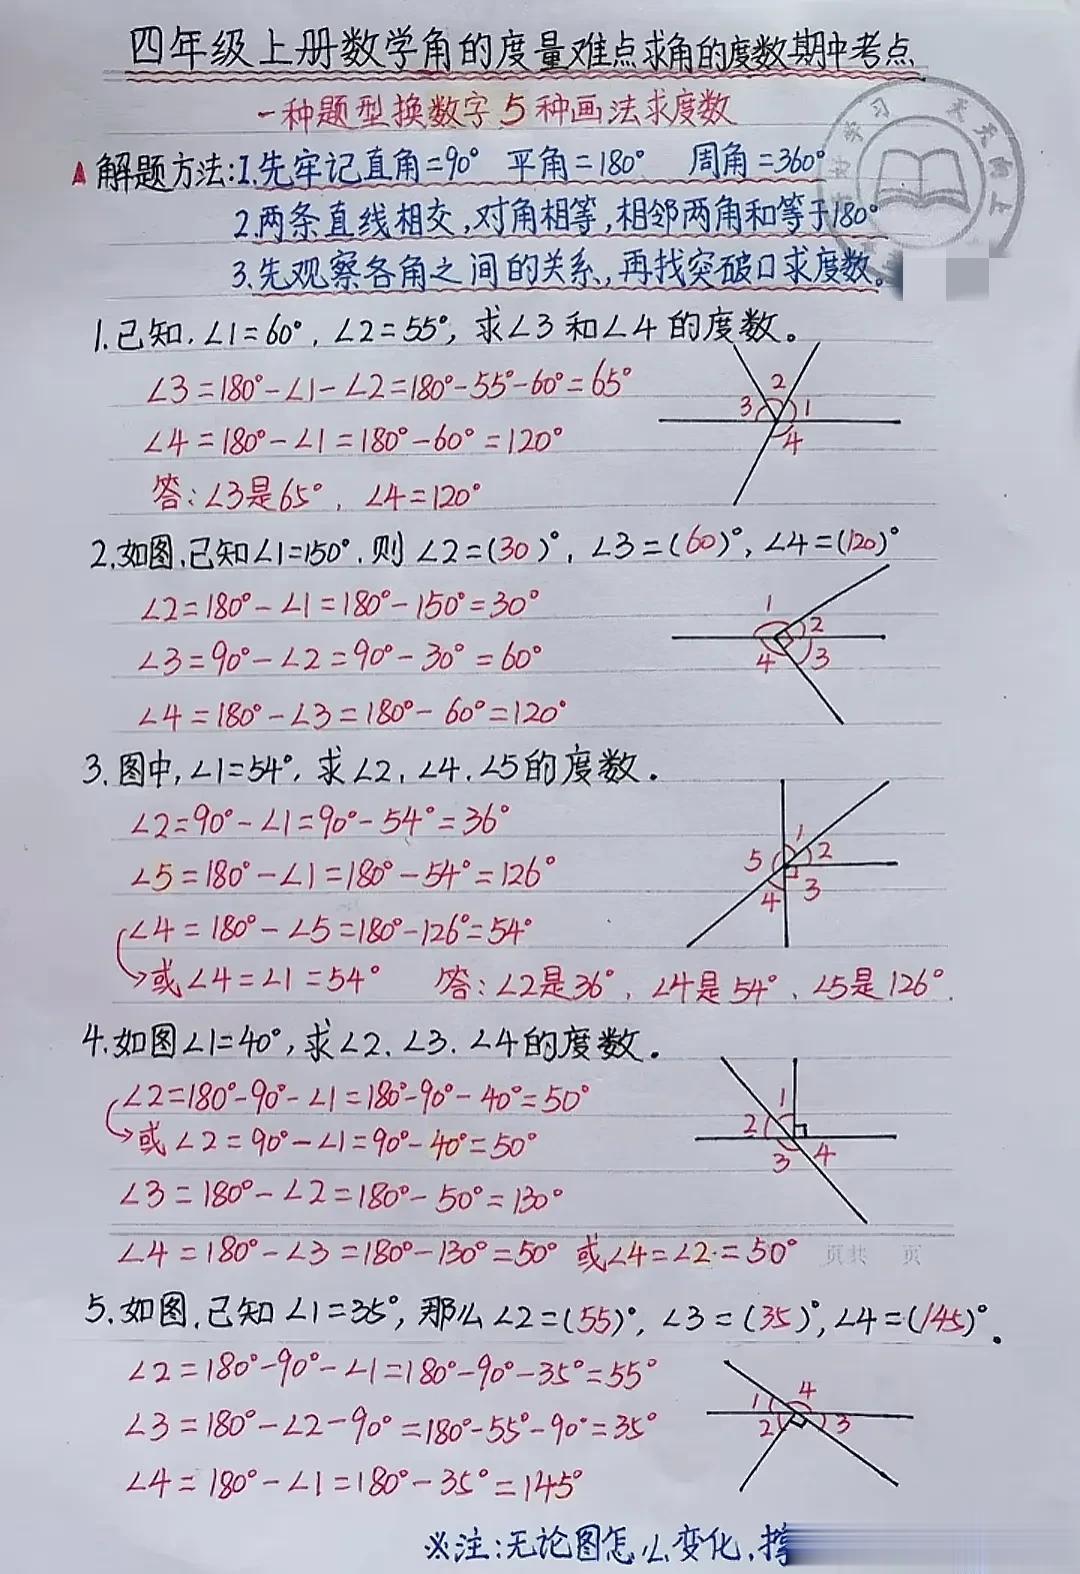 四年级上册数学角的度量难点求角的度数期中考点
一种题型换数字5种画法求度数
解题方法:1.先牢记直角=90° 平角=180° 周角=360°
2.两条直线相交,对角相等,相邻两角和等于180°
3.先观察各角之间的关系,再找突破口求度数。
1.已知,∠1=60°,∠2=55°,求∠3和∠4的度数。
∠3=180°-∠1-∠2=180°-55°-60°=65°
2
3 1
4
∠4=180°-∠1=180°-60°=120°
答:∠3是65°,∠4=120°
2.如图,已知∠1=150°.则∠2=(30)°,∠3=(60)°,∠4=(120)°
∠2=180°-∠1=180°-150°=30°
1
2
4 3
∠3=90°-∠2=90°-30°=60°
∠4=180°-∠3=180°-60°=120°
3.图中,∠1=54°,求∠2.∠4.∠5的度数.
∠2=90°-∠1=90°-54°=36°
1
5 2
4 3
∠5=180°-∠1=180°-54°=126°
∠4=180°-∠5=180°-126°=54°
或∠4=∠1=54° 答:∠2是36°,∠4是54°、∠5是126°.
4.如图∠1=40°,求∠2.∠3.∠4的度数.
∠2=180°-90°-∠1=180°-90°-40°=50°
1
2
3 4
或∠2=90°-∠1=90°-40°=50°
∠3=180°-∠2=180°-50°=130°
∠4=180°-∠3=180°-130°=50° 或∠4=∠2=50° 页共 页
5.如图,已知∠1=35°,那么∠2=(55)°,∠3=(35)°,∠4=(145)°.
∠2=180°-90°-∠1=180°-90°-35°=55°
1 4
2 3
∠3=180°-∠2-90°=180°-55°-90°=35°
∠4=180°-∠1=180°-35°=145°
※注:无论图怎么变化,